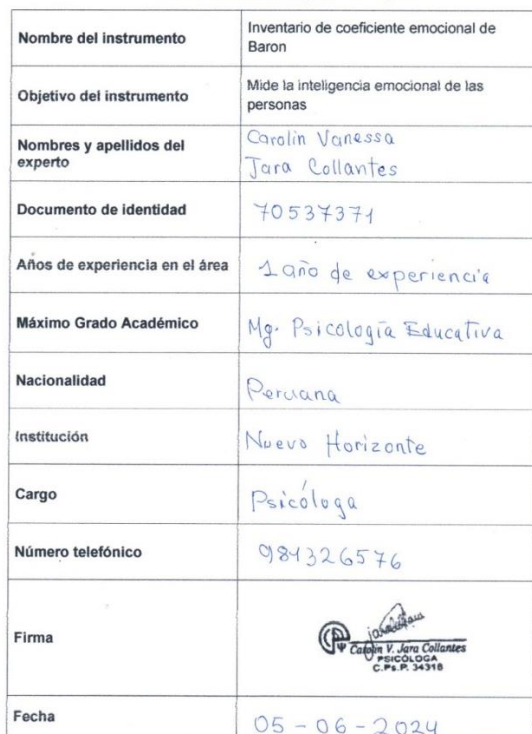 Nombre del instrumento
Inventario de coeficiente emocional de
Baron
Objetivo del instrumento
Mide la inteligencia emocional de las
personas
Nombres y apellidos del
experto
Carolin Vanessa
Jara Collantes
Documento de identidad
70537371
Años de experiencia en el área
1 año de experiencia
Máximo Grado Académico
Mg. Psicología Educativa
Nacionalidad
Peruana
Institución
Nuevo Horizonte
Cargo
Psicóloga
Número telefónico
981326576
Firma
Carolin V. Jara Collantes
PSICÓLOGA
C.Ps.P. 34318
Fecha
05-06-2024